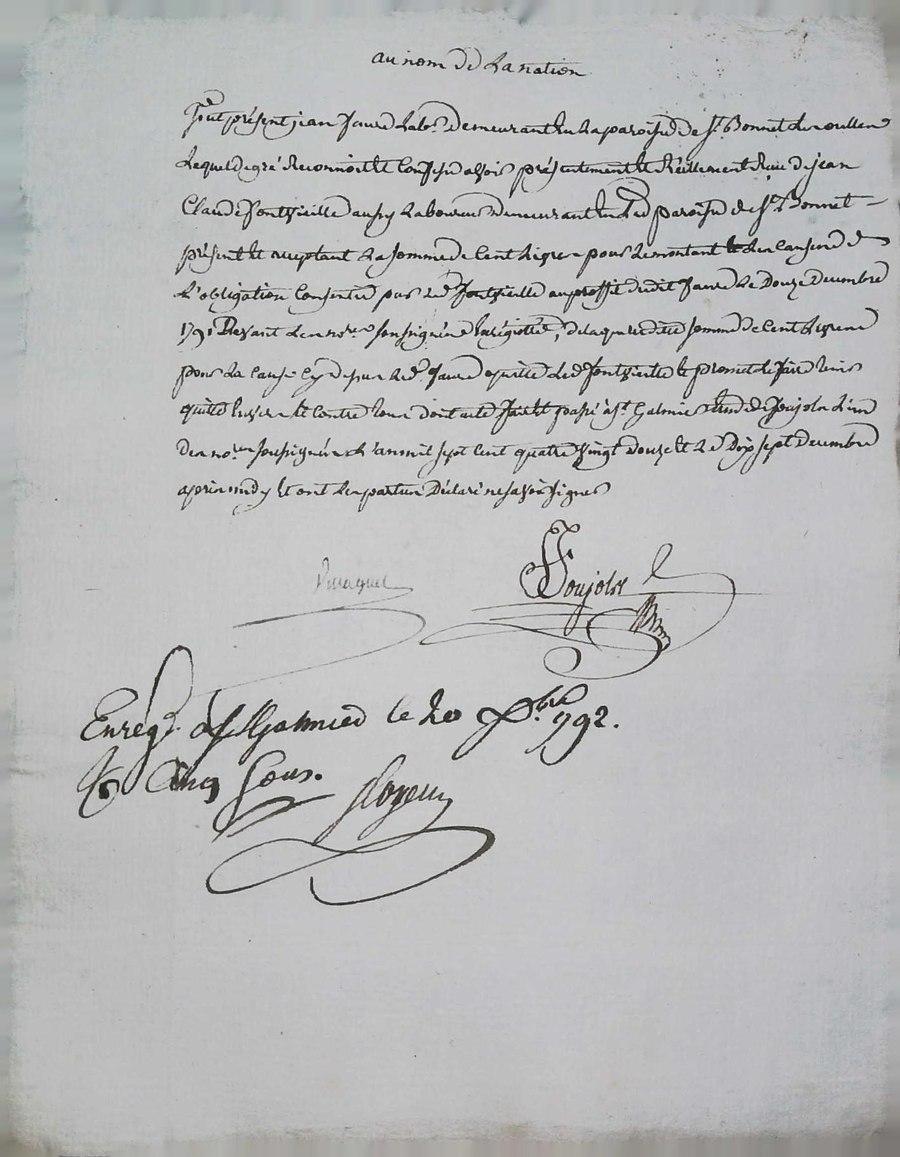 au nom de la nation
fut présent jean faure lab.r demeurant en la paroisse de St. Bonnet les oulles
lequel de gré reconnoit et confesse avoir présentement et réellement reçu de jean
Claude fontvieille aussy laboureur demeurant en lad. paroisse de St. Bonnet
présent et acceptant la somme de cent livres pour le montant et les causes de
l'obligation consentie par led. fontvieille au proffit dudit faure le douze decembre
1791 devant les no.res soussignés enregistrée, de laquelle dite somme de cent livres
pour la cause cy dessus led. faure quitte led. fontvieille et promet le faire tenir
quitte envers et contre tous dont acte fait et passé à St. Galmier etude de Poujols l'un
des no.res soussignés l'an mil sept cent quatre vingt douze et le dix sept decembre
après midy et ont les parties déclaré ne savoir signer
Poujols
Enreg. à St Galmier le 20 Xbre 1792.
R cinq sous.